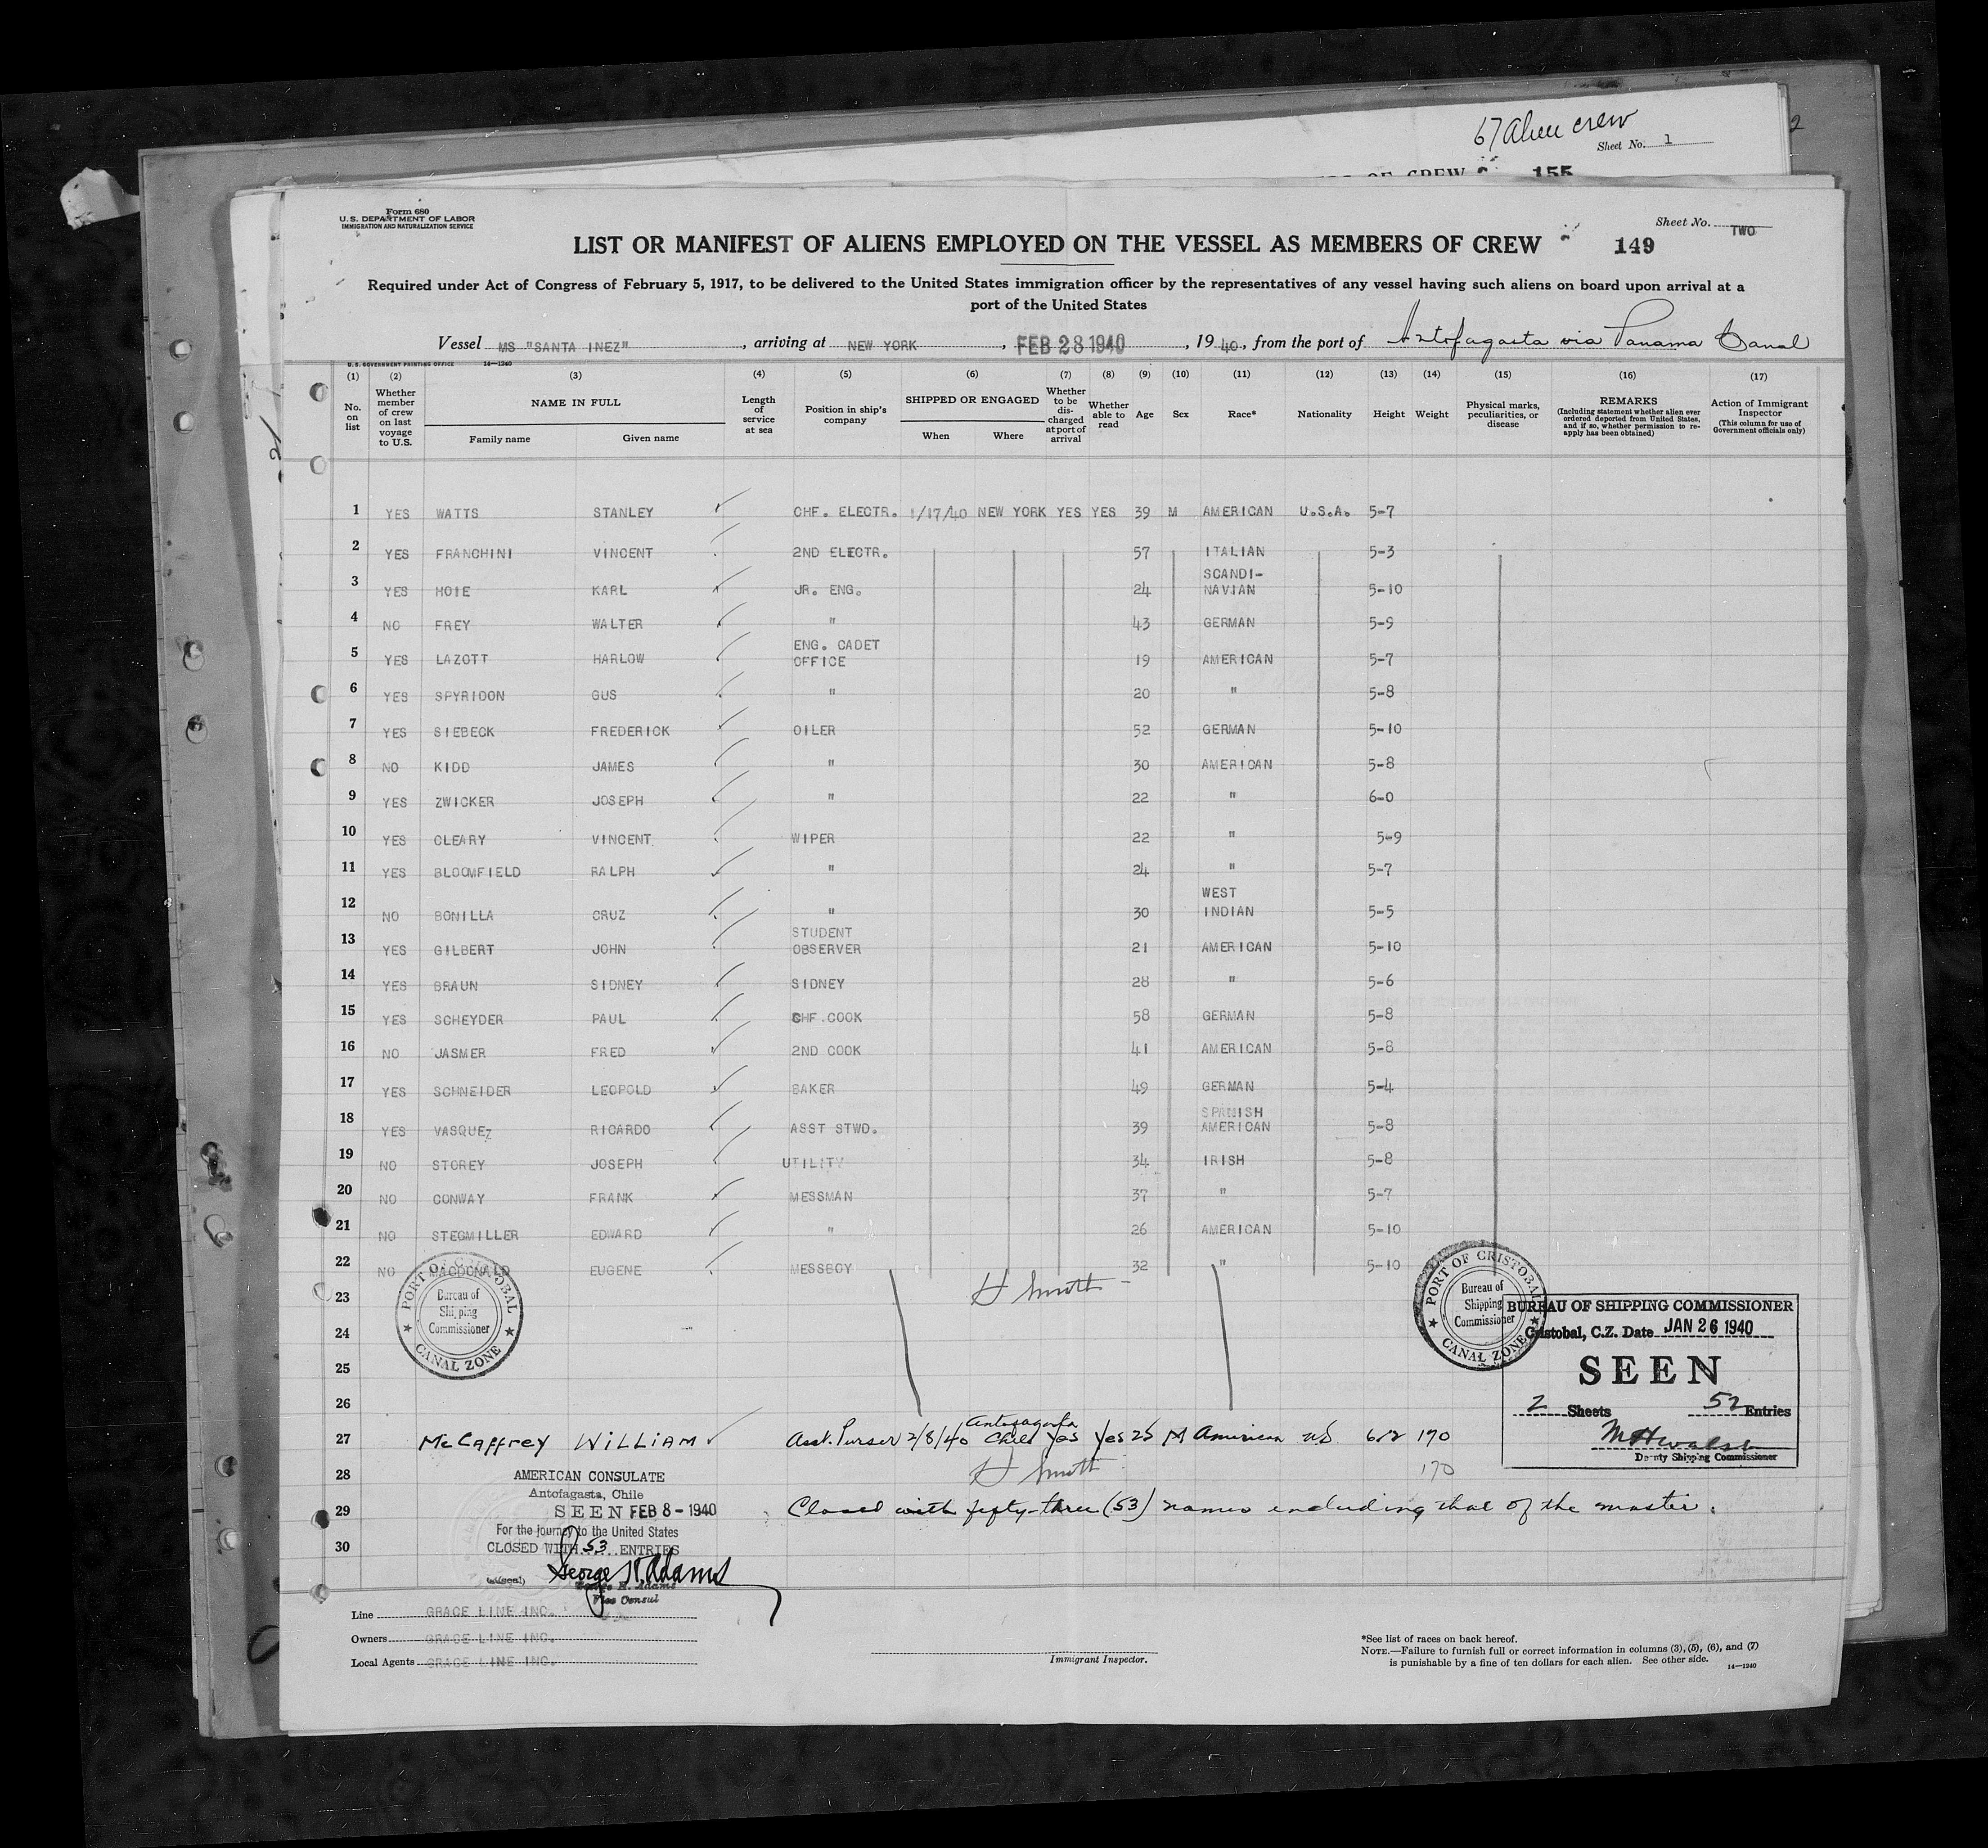 67 alien crew
Sheet No. 1
155
2
Form 680
U.S. DEPARTMENT OF LABOR
IMMIGRATION AND NATURALIZATION SERVICE
Sheet No. TWO
LIST OR MANIFEST OF ALIENS EMPLOYED ON THE VESSEL AS MEMBERS OF CREW 149
Required under Act of Congress of February 5, 1917, to be delivered to the United States immigration officer by the representatives of any vessel having such aliens on board upon arrival at a
port of the United States
Vessel MS "SANTA INEZ", arriving at NEW YORK, FEB 28 1940, 1940, from the port of Antofagasta via Panama Canal
U.S. GOVERNMENT PRINTING OFFICE 14—1240
(1) (2) (3) (4) (5) (6) (7) (8) (9) (10) (11) (12) (13) (14) (15) (16) (17)
No. on list
Whether member of crew on last voyage to U.S.
NAME IN FULL
Family name Given name
Length of service at sea
Position in ship's company
SHIPPED OR ENGAGED
When Where
Whether to be discharged at port of arrival
Whether able to read
Age
Sex
Race*
Nationality
Height
Weight
Physical marks, peculiarities, or disease
REMARKS
(Including statement whether alien ever ordered deported from United States, and if so, whether permission to reapply has been obtained)
Action of Immigrant Inspector
(This column for use of Government officials only)
1 YES WATTS STANLEY CHF. ELECTR. 1/17/40 NEW YORK YES YES 39 M AMERICAN U.S.A. 5-7
2 YES FRANCHINI VINCENT 2ND ELECTR. 57 ITALIAN 5-3
3 YES HOIE KARL JR. ENG. 24 SCANDI-NAVIAN 5-10
4 NO FREY WALTER " 43 GERMAN 5-9
5 YES LAZOTT HARLOW ENG. CADET OFFICE 19 AMERICAN 5-7
6 YES SPYRIDON GUS " 20 " 5-8
7 YES SIEBECK FREDERICK OILER 52 GERMAN 5-10
8 NO KIDD JAMES " 30 AMERICAN 5-8
9 YES ZWICKER JOSEPH " 22 " 6-0
10 YES CLEARY VINCENT WIPER 22 " 5-9
11 YES BLOOMFIELD RALPH " 24 " 5-7
12 NO BONILLA CRUZ " 30 WEST INDIAN 5-5
13 YES GILBERT JOHN STUDENT OBSERVER 21 AMERICAN 5-10
14 YES BRAUN SIDNEY SIDNEY 28 " 5-6
15 YES SCHEYDER PAUL CHF.COOK 58 GERMAN 5-8
16 NO JASMER FRED 2ND COOK 41 AMERICAN 5-8
17 YES SCHNEIDER LEOPOLD BAKER 49 GERMAN 5-4
18 YES VASQUEZ RICARDO ASST STWD. 39 SPANISH AMERICAN 5-8
19 NO STOREY JOSEPH UTILITY 34 IRISH 5-8
20 NO CONWAY FRANK MESSMAN 37 " 5-7
21 NO STEGMILLER EDWARD " 26 AMERICAN 5-10
22 NO MACDONALD EUGENE MESSBOY 32 " 5-10
23 H Smith
24
25
26
27 McCaffrey William Asst. Purser 2/8/40 Antofagasta Chile Yes Yes 25 M American US 6-2 170
28 H Smith 170
29 Closed with fifty-three (53) names including that of the master.
30
PORT OF CRISTOBAL
Bureau of Shipping Commissioner
CANAL ZONE
PORT OF CRISTOBAL
Bureau of Shipping Commissioner
CANAL ZONE
BUREAU OF SHIPPING COMMISSIONER
Cristobal, C.Z. Date JAN 26 1940
SEEN
2 Sheets 52 Entries
MHWalsh
Deputy Shipping Commissioner
AMERICAN CONSULATE
Antofagasta, Chile
SEEN FEB 8 - 1940
For the journey to the United States
CLOSED WITH 53 ENTRIES
George H. Adams
(Seal) George H. Adams
Vice Consul
Line GRACE LINE INC.
Owners GRACE LINE INC.
Local Agents GRACE LINE INC.
Immigrant Inspector.
*See list of races on back hereof.
NOTE.—Failure to furnish full or correct information in columns (3), (5), (6), and (7)
is punishable by a fine of ten dollars for each alien. See other side. 14—1240